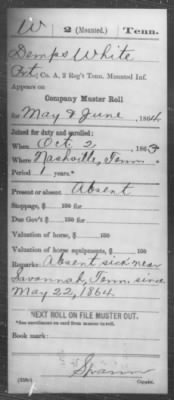 W 2 (Mounted.) Tenn.
Demps White
Pvt, Co. A, 2 Reg't Tenn. Mounted Inf.
Appears on
Company Muster Roll
for May & June, 1864
Joined for duty and enrolled:
When Oct 2, 1863
Where Nashville, Tenn.
Period 1 years.*
Present or absent Absent
Stoppage, $ 100 for
Due Gov't $ 100 for
Valuation of horse, $ 100
Valuation of horse equipments, $ 100
Remarks: Absent sick near
Savannah, Tenn. since
May 22, 1864.
NEXT ROLL ON FILE MUSTER OUT.
*See enrollment on card from muster-in roll.
Book mark:
Spann
Copyist.